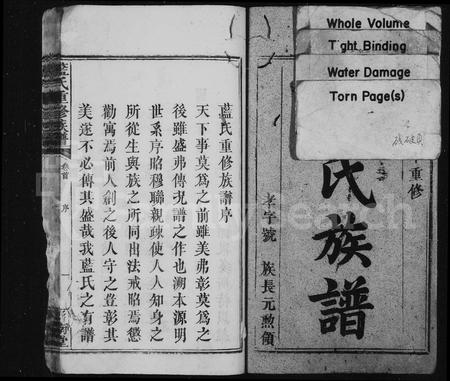 Whole Volume
Tight Binding
Water Damage
Torn Page(s)
残破頁
重修
氏族譜
孝字號 族長元勲領
藍氏重修族譜序
天下事莫爲之前雖美弗彰莫爲之
後雖盛弗傳況譜之作也溯本源明
世系序昭穆聯親疎使人人知身之
所從生與族之所同出法戒昭焉懲
勸寓焉前人創之後人守之豈彰其
美遂不必傳其盛哉我藍氏之有譜
藍氏重修族譜
卷首
序
一